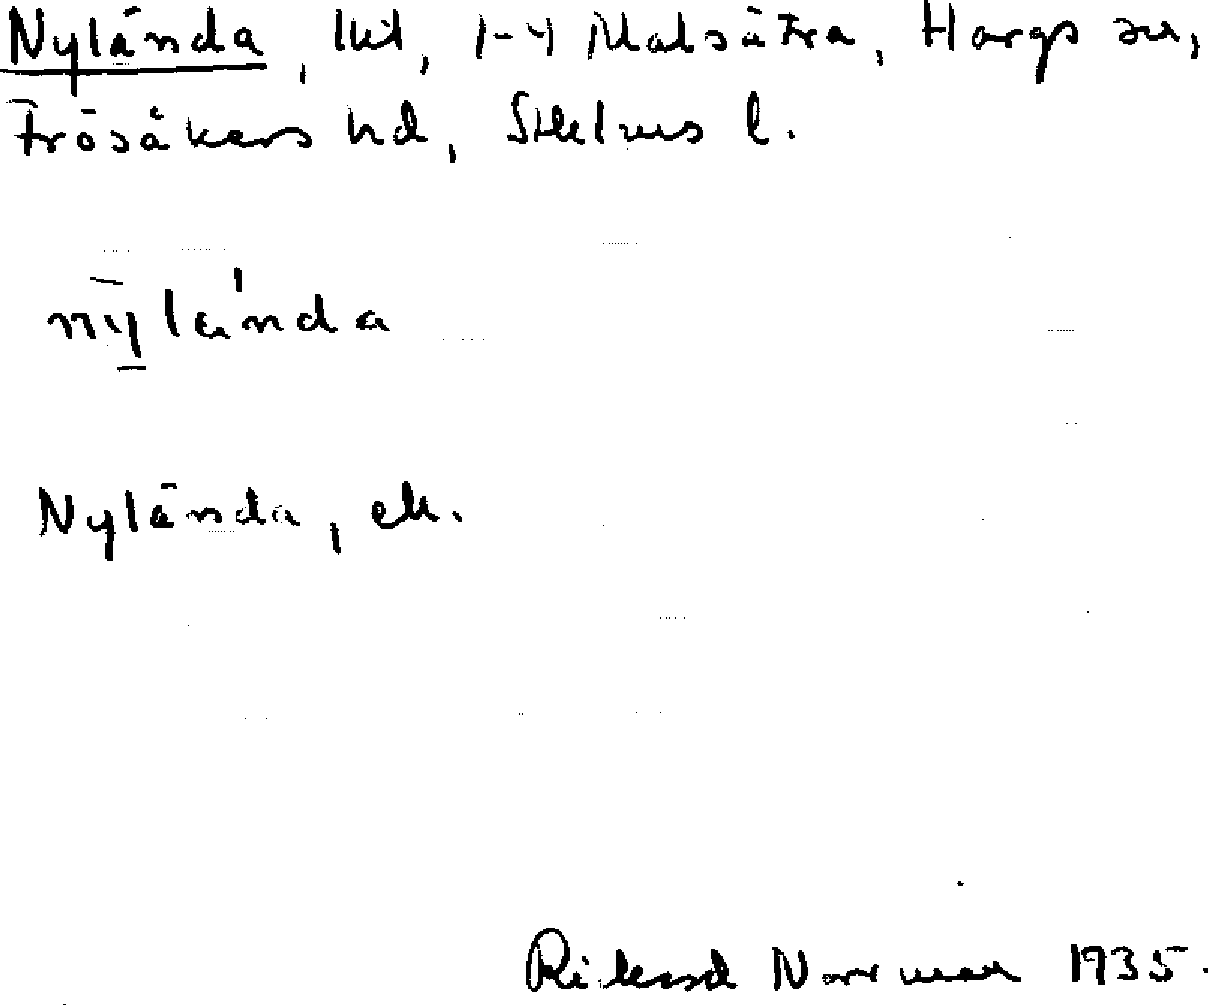 Nylända, lht, 1-4 Malsätra, Hargs sn,
Frösåkers hd, Sthlms l.
nylända
Nylända, ek.
Rikard Norrman 1935.